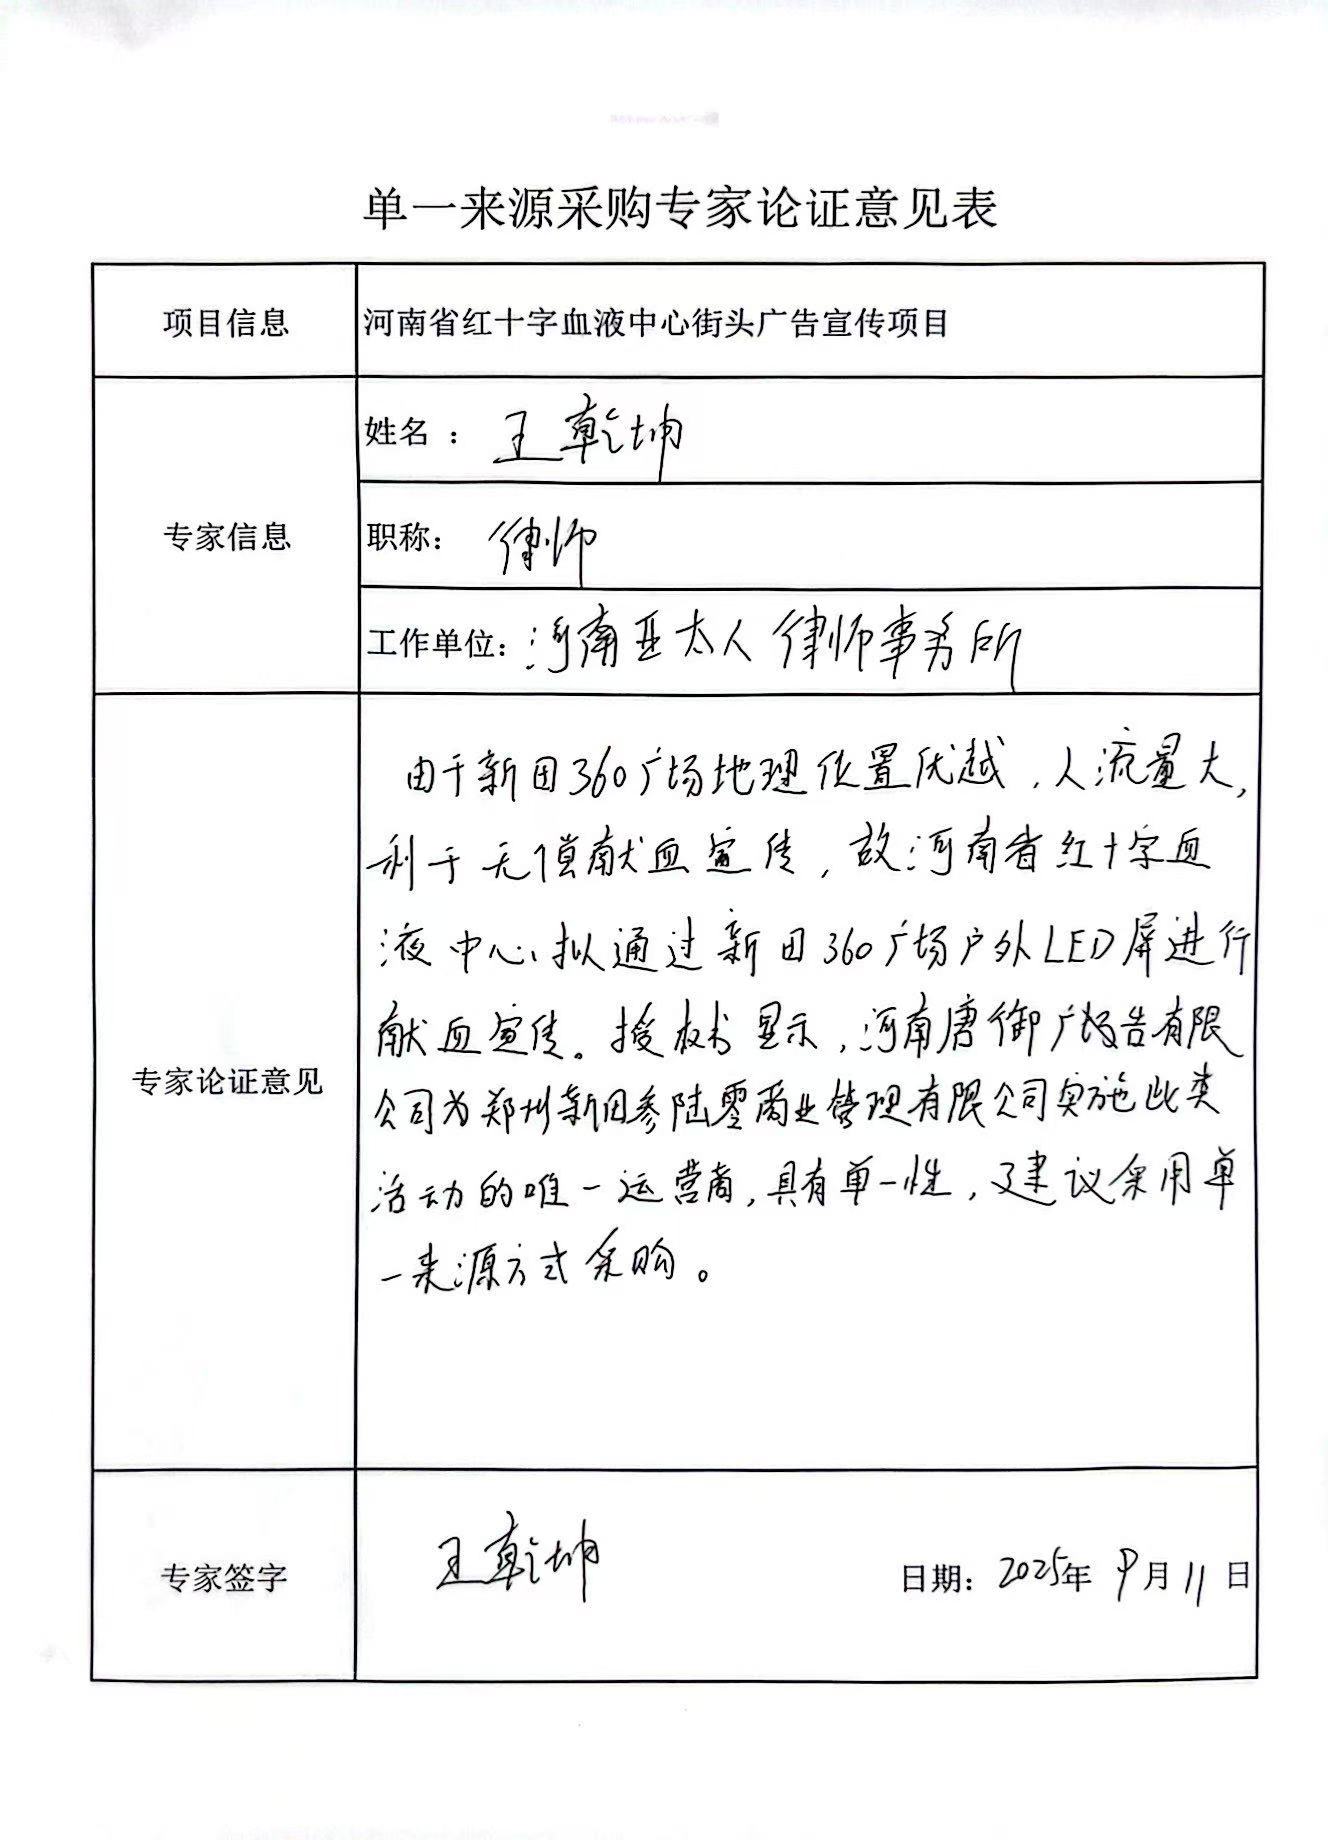 单一来源采购专家论证意见表
项目信息 河南省红十字血液中心街头广告宣传项目
专家信息
姓名 : 王乾坤
职称: 律师
工作单位: 河南亚太人律师事务所
专家论证意见
由于新田360广场地理位置优越,人流量大,
利于无偿献血宣传,故河南省红十字血
液中心拟通过新田360广场户外LED屏进行
献血宣传。授权书显示,河南唐御广告有限
公司为郑州新田参陆零商业管理有限公司实施此类
活动的唯一运营商,具有单一性,建议采用单
一来源方式采购。
专家签字 王乾坤 日期: 2025年 9月 11 日